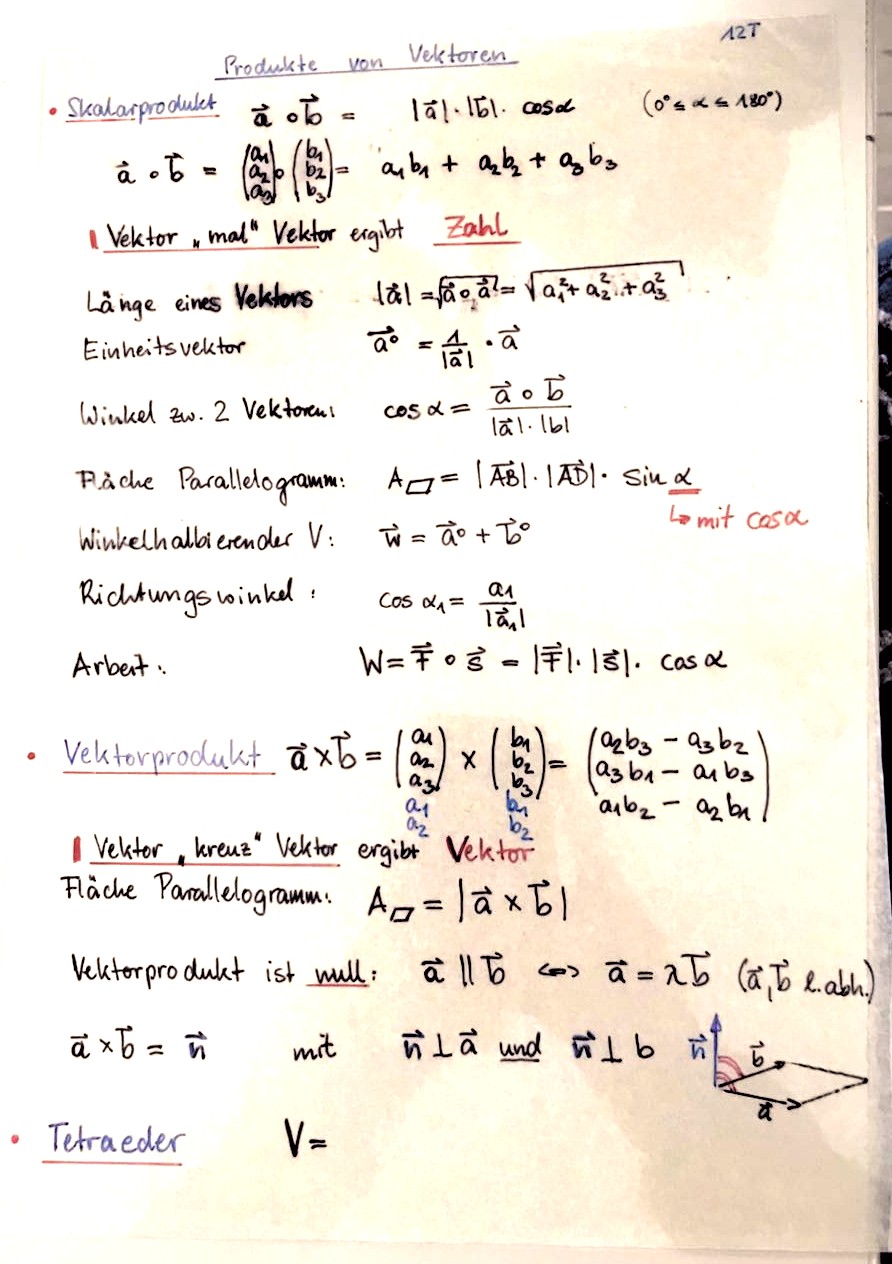 12T
Produkte von Vektoren
• Skalarprodukt a⃗ ∘ b⃗ = |a⃗| · |b⃗| · cosα (0° ≤ α ≤ 180°)
a⃗ ∘ b⃗ = (a₁ a₂ a₃) ∘ (b₁ b₂ b₃) = a₁b₁ + a₂b₂ + a₃b₃
Vektor „mal“ Vektor ergibt Zahl
Länge eines Vektors |a⃗| = √(a⃗ ∘ a⃗) = √(a₁² + a₂² + a₃²)
Einheitsvektor a⃗⁰ = 1/|a⃗| · a⃗
Winkel zw. 2 Vektoren: cos α = (a⃗ ∘ b⃗)/(|a⃗| · |b|)
Fläche Parallelogramm: A▱ = |AB⃗| · |AD⃗| · sin α
↳ mit cosα
Winkelhalbierender V: w⃗ = a⃗⁰ + b⃗⁰
Richtungswinkel: cos α₁ = a₁/|a⃗₁|
Arbeit: W = F⃗ ∘ s⃗ = |F⃗| · |s⃗| · cos α
• Vektorprodukt a⃗ × b⃗ = (a₁ a₂ a₃) × (b₁ b₂ b₃) = (a₂b₃ − a₃b₂ a₃b₁ − a₁b₃ a₁b₂ − a₂b₁)
a₁ b₁
a₂ b₂
Vektor „kreuz“ Vektor ergibt Vektor
Fläche Parallelogramm: A▱ = |a⃗ × b⃗|
Vektorprodukt ist null: a⃗ || b⃗ <=> a⃗ = λb⃗ (a⃗, b⃗ l. abh.)
a⃗ × b⃗ = n⃗ mit n⃗ ⊥ a⃗ und n⃗ ⊥ b
n⃗ b⃗
a⃗
• Tetraeder V=